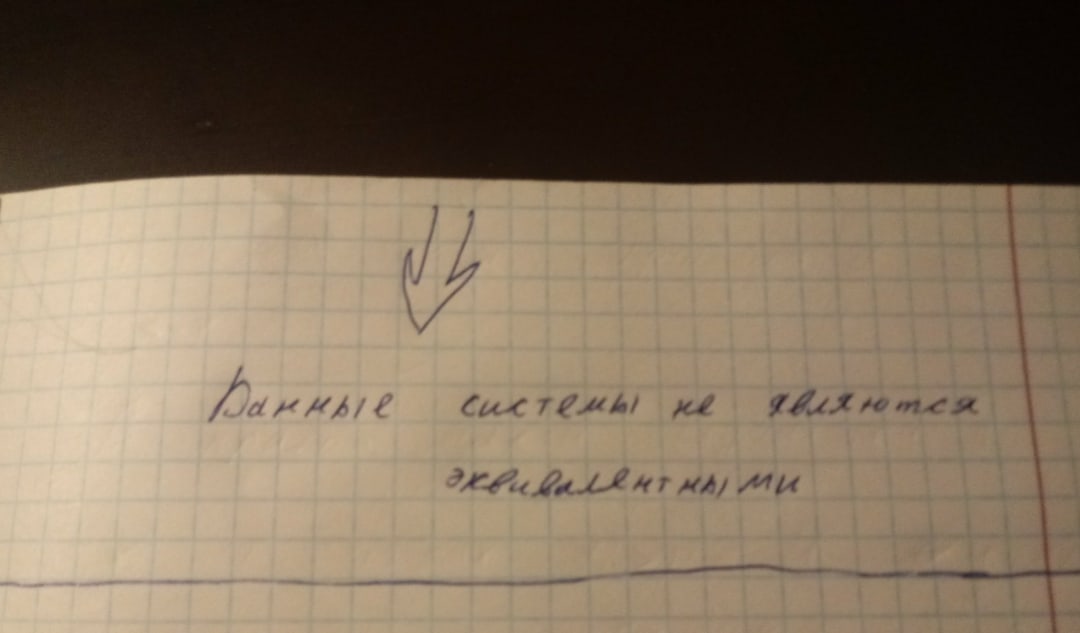 Данные системы не являются
эквивалентными